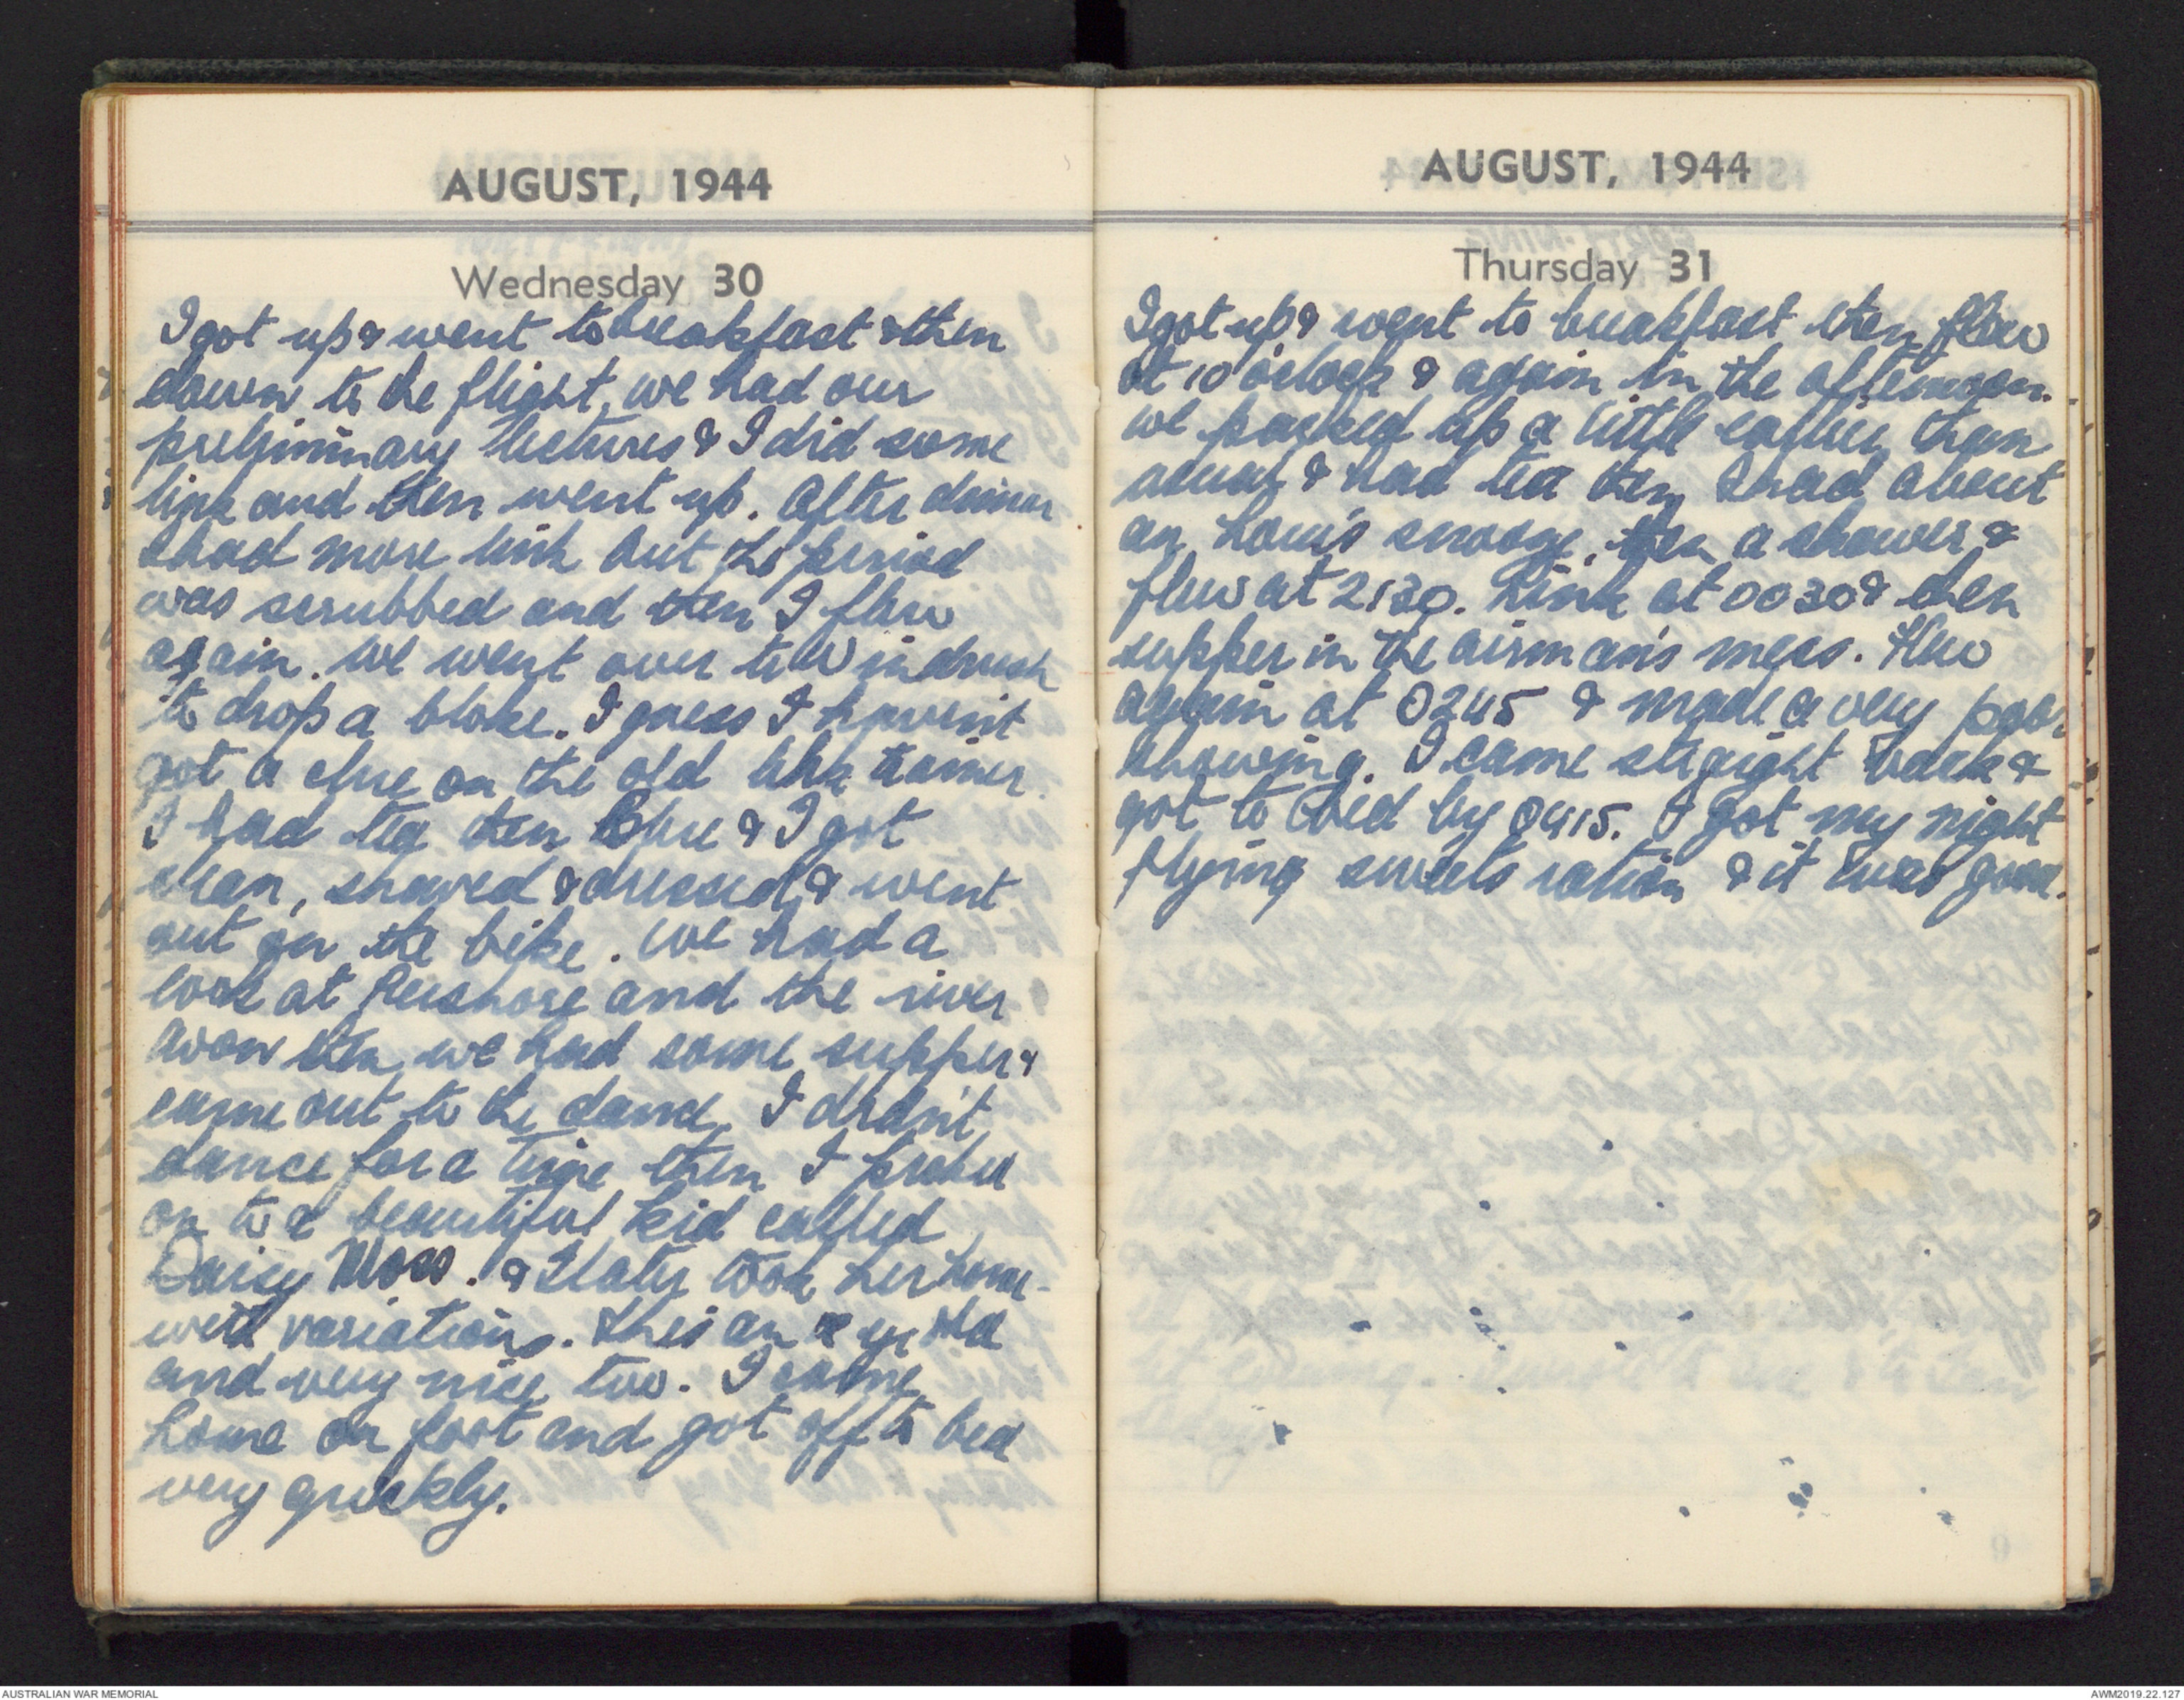 AUGUST, 1944
Wednesday 30
I got up & went to breakfast & then
down to the flight, we had our
preliminary lectures & I did some
link and then went up. After dinner
I had more link but the period
was scrubbed and then I flew
again. We went over to Windrush
to drop a bloke. I guess I haven't
got a clue on the old link trainer.
I had tea then & I got
clean, shaved & dressed & went
out on the bike. We had a
look at Pershore and the river
Avon then we had some supper &
came out to the dance. I didn't
dance for a time then I
on to a beautiful kid called
Daisy Moss. & I later took her home -
with variations. yr old
and very nice too. I came
home on foot and got off to bed
very quickly.
AUGUST, 1944
Thursday 31
I got up & went to breakfast then flew
at 10 o'clock & again in the afternoon.
We packed up a little earlier than
usual & had tea then I had about
an hour's snooze, then a shower &
flew at 2130. Link at 0030 & then
supper in the airman's mess. Flew
again at 0245 & made a very poor
showing. I came straight back &
got to bed by 0415. I got my night
flying sweets ration & it was good.
AUSTRALIAN WAR MEMORIAL
AWM2019.22.127